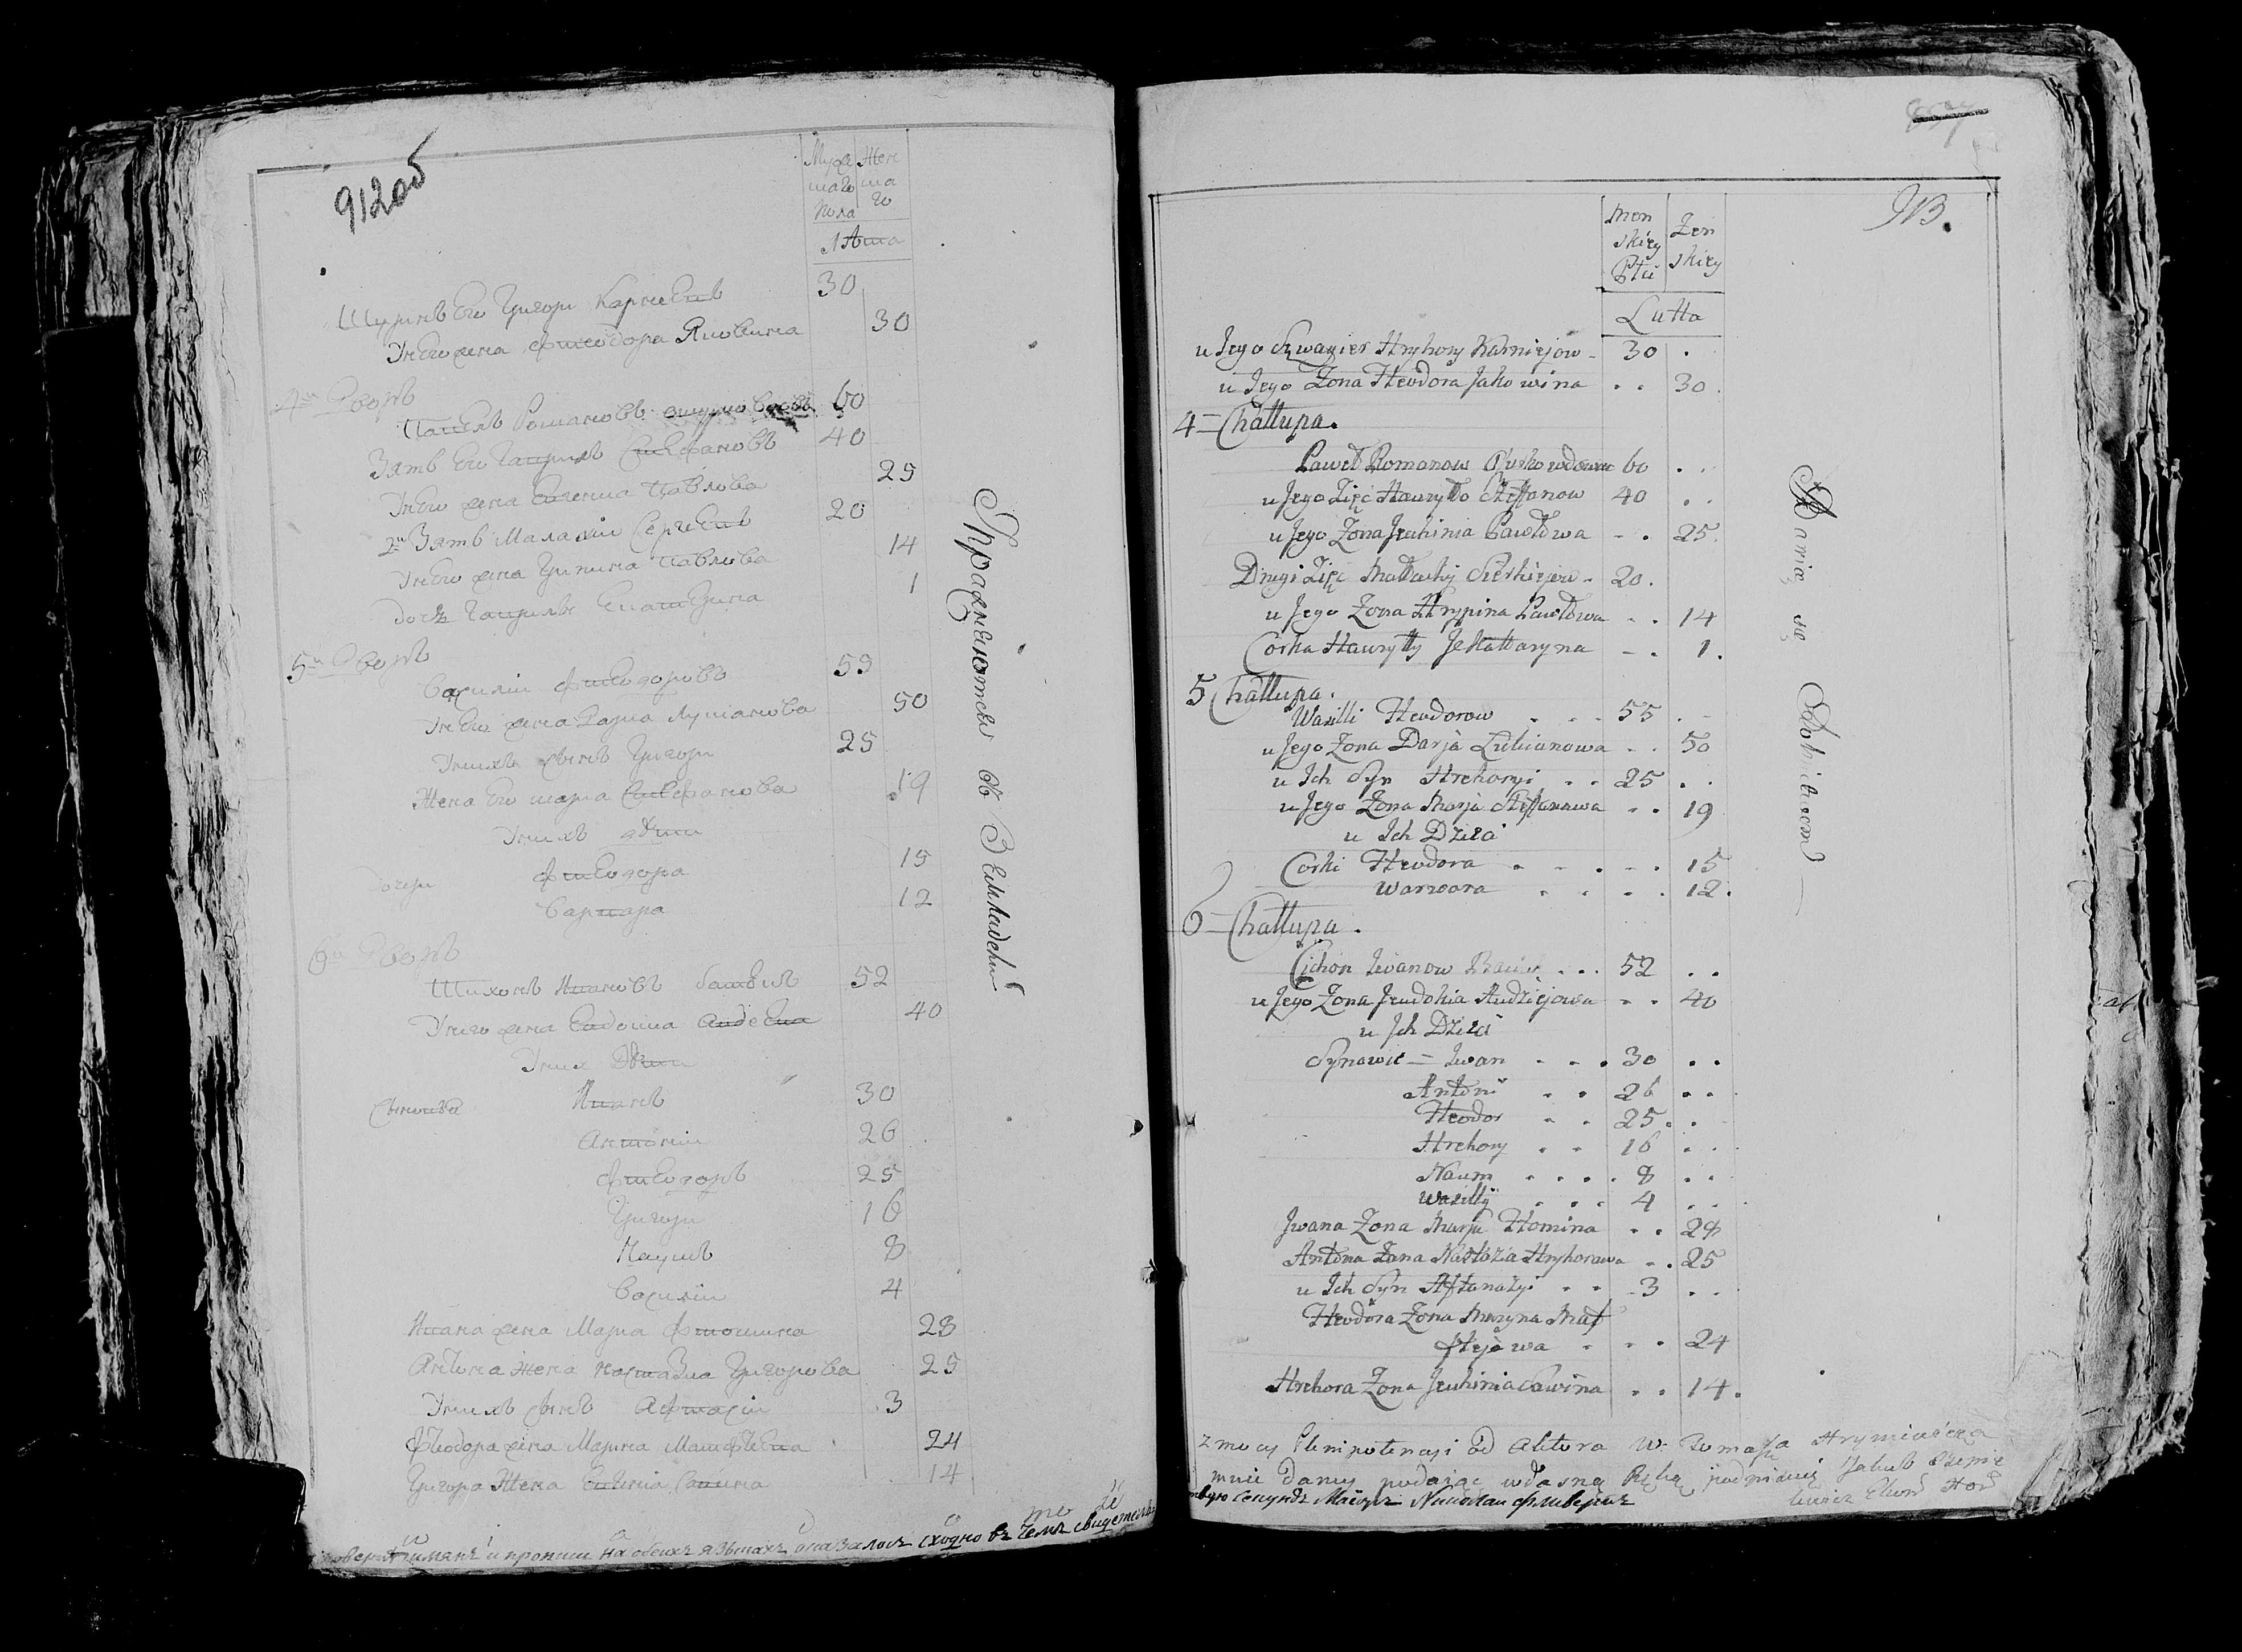 912об
Муже Жен
скаго ска
пола го
Лѣта
Шуринъ Его Григори Карнеевъ 30
Унего жена Фтеодора Яковина 30
4й Дворъ
Павелъ Романовъ 60
Зять Его Гаврилъ Стефановъ 40
Унего жена Евгениа Павлова 25
2й Зять Малахiй Сергеевъ 20
Унего жена Грипина Павлова 14
дочь Гаврилы Екатерина 1
5й Дворъ
Василiй Фтеодоровъ 55
Унего жена Дариа Лукианова 50
Унихъ сынъ Григори 25
Жена Его мариа Стефанова 19
Унихъ дѣти
дочери Фтеодора 15
Варвара 12
6й Дворъ
Тихонъ Ивановъ 52
Унего жена Евдокиа Авдеева 40
Уних дѣти
Сыновья Иванъ 30
Антонiй 26
Фтеодоръ 25
Григори 16
Наумъ 8
Василiй 4
Ивана жена Мариа Фтомина 28
Антона жена Настазиа Григорова 25
Унихъ сынъ Афтнасiй 3
Фтеодора жена Марина Матфеева 24
Григора Жена Евгиниа Савина 14
Упражняются въ Земледелiй
и прописи на обеихъ языкахъ оказалось сходно въ чемъ свидетельст
913.
Męn Żen
skiey skiey
Płci
Latta
u Jego Szwagier Hryhory Karniejow 30
u Jego Zona Fteodora Jakowina 30
4 Challupa.
Paweł Romanow 60
u Jego Zięć Hawryło Steffanow 40
u Jego Zona Jeuhinia Pawłowa 25
Drugi Zięć Małachij Serhiejew 20
u Jego Zona Hrypina Pawłowa 14
Corka Hawryły Jekattaryna 1.
5 Challupa.
Wasilli Fteodorow 55
u Jego Zona Darja Lukianowa 50
u Ich Syn Hrehoryi 25
u Jego Zona Marja Steffanowa 19
u Ich Dzieci
Corki Fteodora 15
Warwara 12.
6 Challupa.
Cichon Iwanow 52
u Jego Zona Jeudokia Audziejowa 40
u Ich Dzieci
Synowie Iwan 30
Antoni 26
Fteodor 25
Hrehory 16
Naum 8
Wasilly 4
Jwana Zona Marja Ftomina 28
Antona Zona Nastazia Hryhorowa 25
u Ich Syn Aftanazy 3
Fteodora Zona Maryna Mat
ftejowa 24
Hrehora Zona Jeuhinia Sawina 14.
Bawią się Rolnictwem
z mocy Plenipotencyi od Aktora W. Tomasza
mnie daney podaiąc własną Ręką podpisuię Jakub
Секундъ Маiоръ Николаи